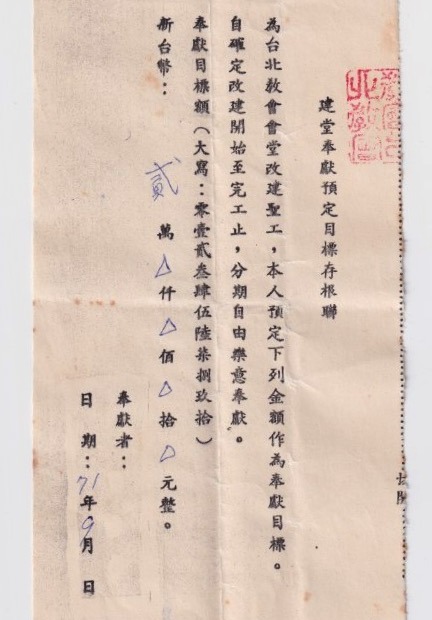 建堂奉獻預定目標存根聯
為台北教會會堂改建聖工，本人預定下列金額作為奉獻目標。
自確定改建開始至完工止，分期自由樂意奉獻。
奉獻目標額（大寫：零壹貳叁肆伍陸柒捌玖拾）
新台幣：貳萬△仟△佰△拾△元整。
奉獻者：
日期：71年9月 日